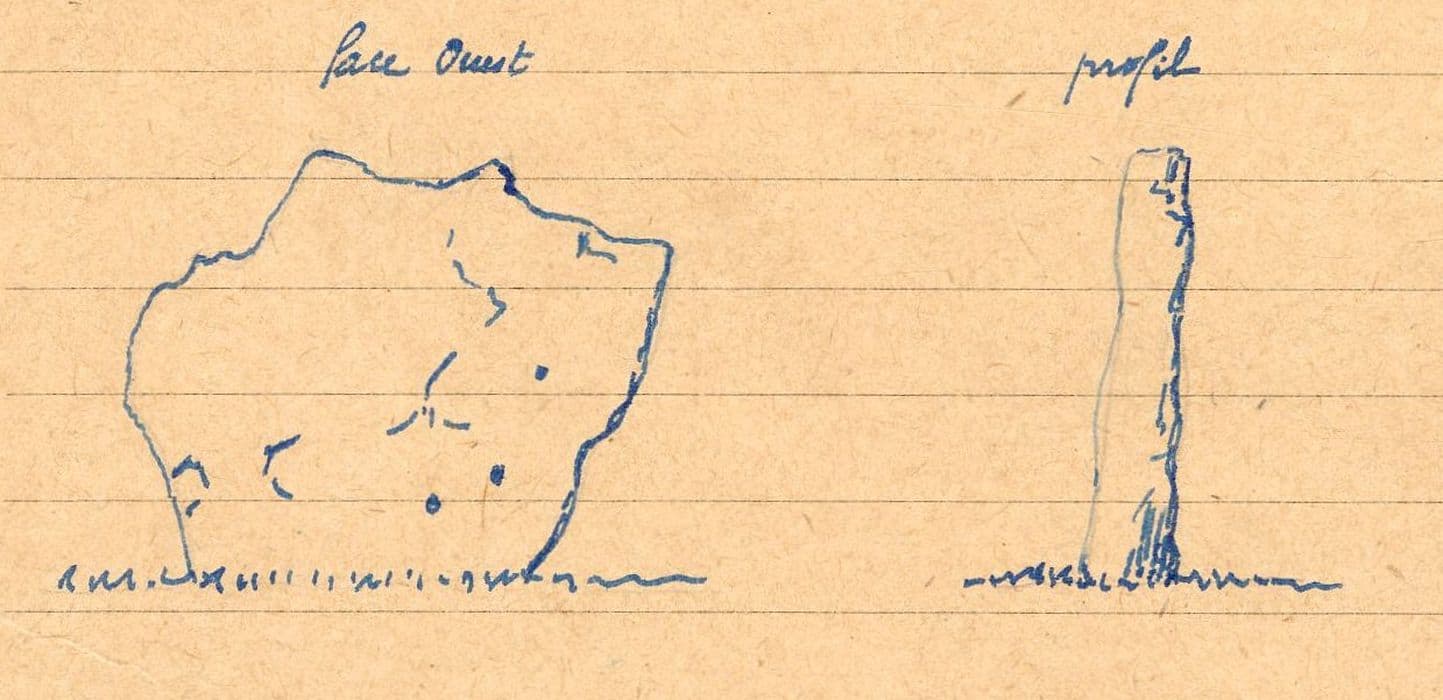 face Ouest
profil